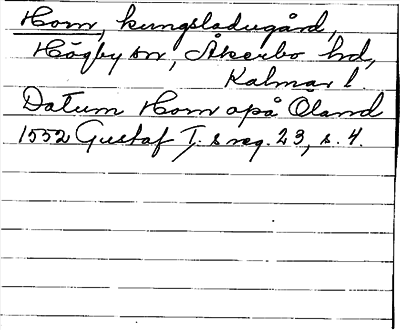 Horn, kungsladugård,
Högby sn, Åkerbo hd,
Kalmar l.
Datum Horn apå Öland
1552 Gustaf I:s reg. 23, s. 4.